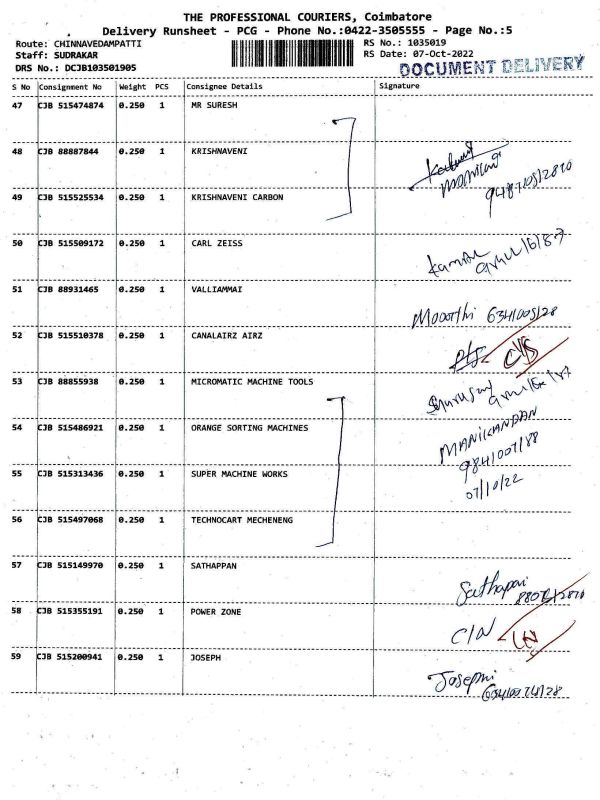 THE PROFESSIONAL COURIERS, Coimbatore
Delivery Runsheet - PCG - Phone No.:0422-3505555 - Page No.:5
Route: CHINNAVEDAMPATTI RS No.: 1035019
Staff: SUDRAKAR RS Date: 07-Oct-2022
DRS No.: DCJB103501905 DOCUMENT DELIVERY
S No Consignment No Weight PCS Consignee Details Signature
47 CJB 515474874 0.250 1 MR SURESH
48 CJB 88887844 0.250 1 KRISHNAVENI
49 CJB 515525534 0.250 1 KRISHNAVENI CARBON
50 CJB 515509172 0.250 1 CARL ZEISS
51 CJB 88931465 0.250 1 VALLIAMMAI
Mooorthi
52 CJB 515510378 0.250 1 CANALAIRZ AIRZ
53 CJB 88855938 0.250 1 MICROMATIC MACHINE TOOLS
54 CJB 515486921 0.250 1 ORANGE SORTING MACHINES
MANIKANDAN
55 CJB 515313436 0.250 1 SUPER MACHINE WORKS
07/10/22
56 CJB 515497068 0.250 1 TECHNOCART MECHENENG
57 CJB 515149970 0.250 1 SATHAPPAN
58 CJB 515355191 0.250 1 POWER ZONE
C/N
59 CJB 515200941 0.250 1 JOSEPH